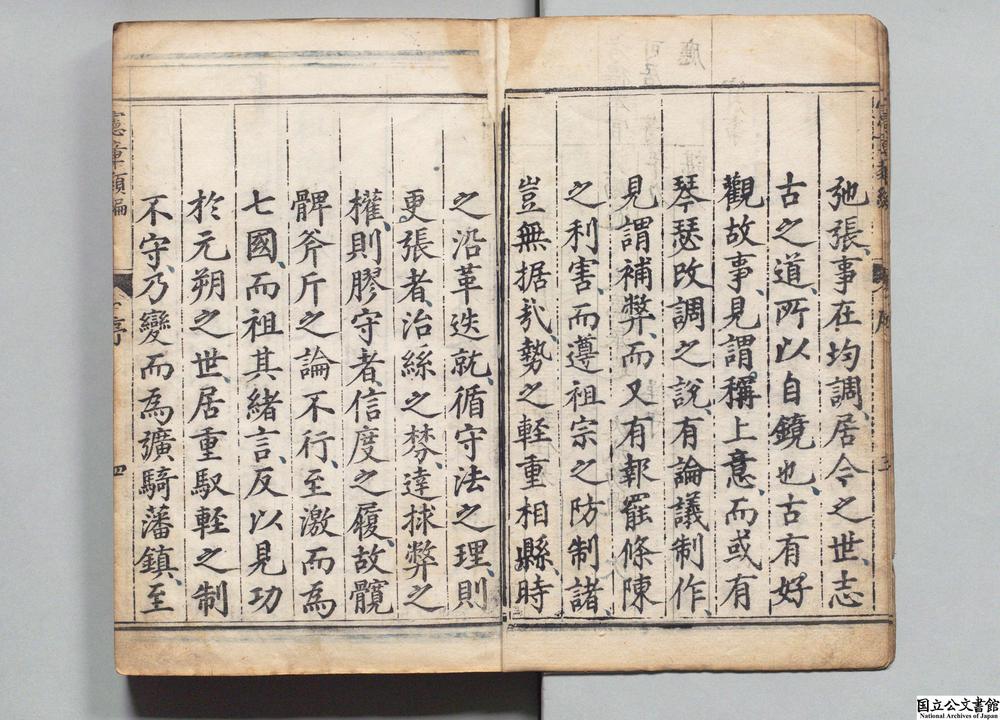 弛張、事在均調、居今之世、志
古之道、所以自鏡也、古有好
觀故事、見謂稱上意、而或有
琴瑟改調之說、有論議制作、
見謂補弊、而又有報罷條陳
之利害、而遵祖宗之防制諸、
豈無据㢤、勢之輊重相縣、時
之沿革迭就、循守法之理、則
更張者、治絲之棼、達捄弊之
權、則膠守者、信度之履、故髖
髀斧斤之論不行、至激而為
七國、而祖其緒言、反以見功
於元朔之世、居重馭輊之制
不守、乃變而為彍騎藩鎮、至
憲章類編
序
四
国立公文書館
National Archives of Japan